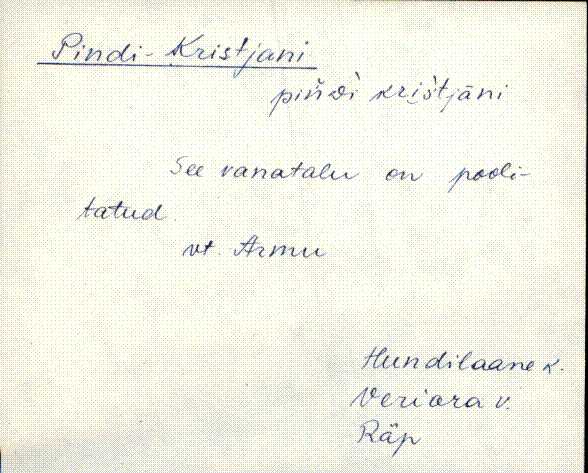 Pindi-Kristjani
kristjāni
See vanatalu on pooli-
tatud.
vt. Armu
Hundilaane k.
Veriora v.
Räp